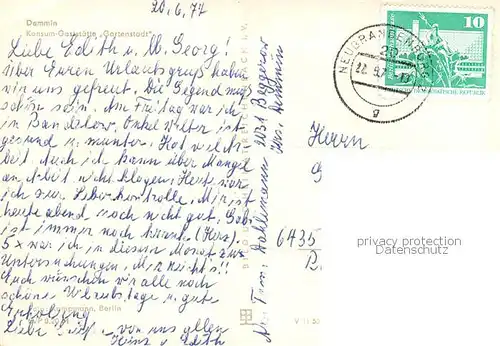 20.6.77
Demmin
Konsum-Gaststätte „Gartenstadt"
Liebe Edith u. M. Georg!
Über Euren Urlaubsgruß haben
wir uns gefreut. Die Gegend muß
schön sein. Am Freitag war ich
in Bandelow, Onkel Walter ist
gesund u. munter. Hat viel Ar-
beit. Auch ich kann über Mangel
an Arbeit nicht klagen. Heute war
ich zur Leberkontrolle, Mir ist
heute abend noch nicht gut.
ist immer noch krank (Herz).
5 x war ich in diesem Monat zur
Untersuchungen. Mir reicht's!!
Euch wünschen wir alle noch
schöne Urlaubstage u. gute
Erholung
Liebe Grüße von uns allen
Heinz u. Edith
Berlin
V 11 50
Abs. Fam. Kahlemann 2031 Beggerow
Krs. Demmin
BILD UND HEIMAT REICHENBACH I. V.
NEUBRANDENBURG
20
22.6.77
g
10
DEUTSCHE DEMOKRATISCHE REPUBLIK
Herrn
G
6435
B.
privacy protection
Datenschutz